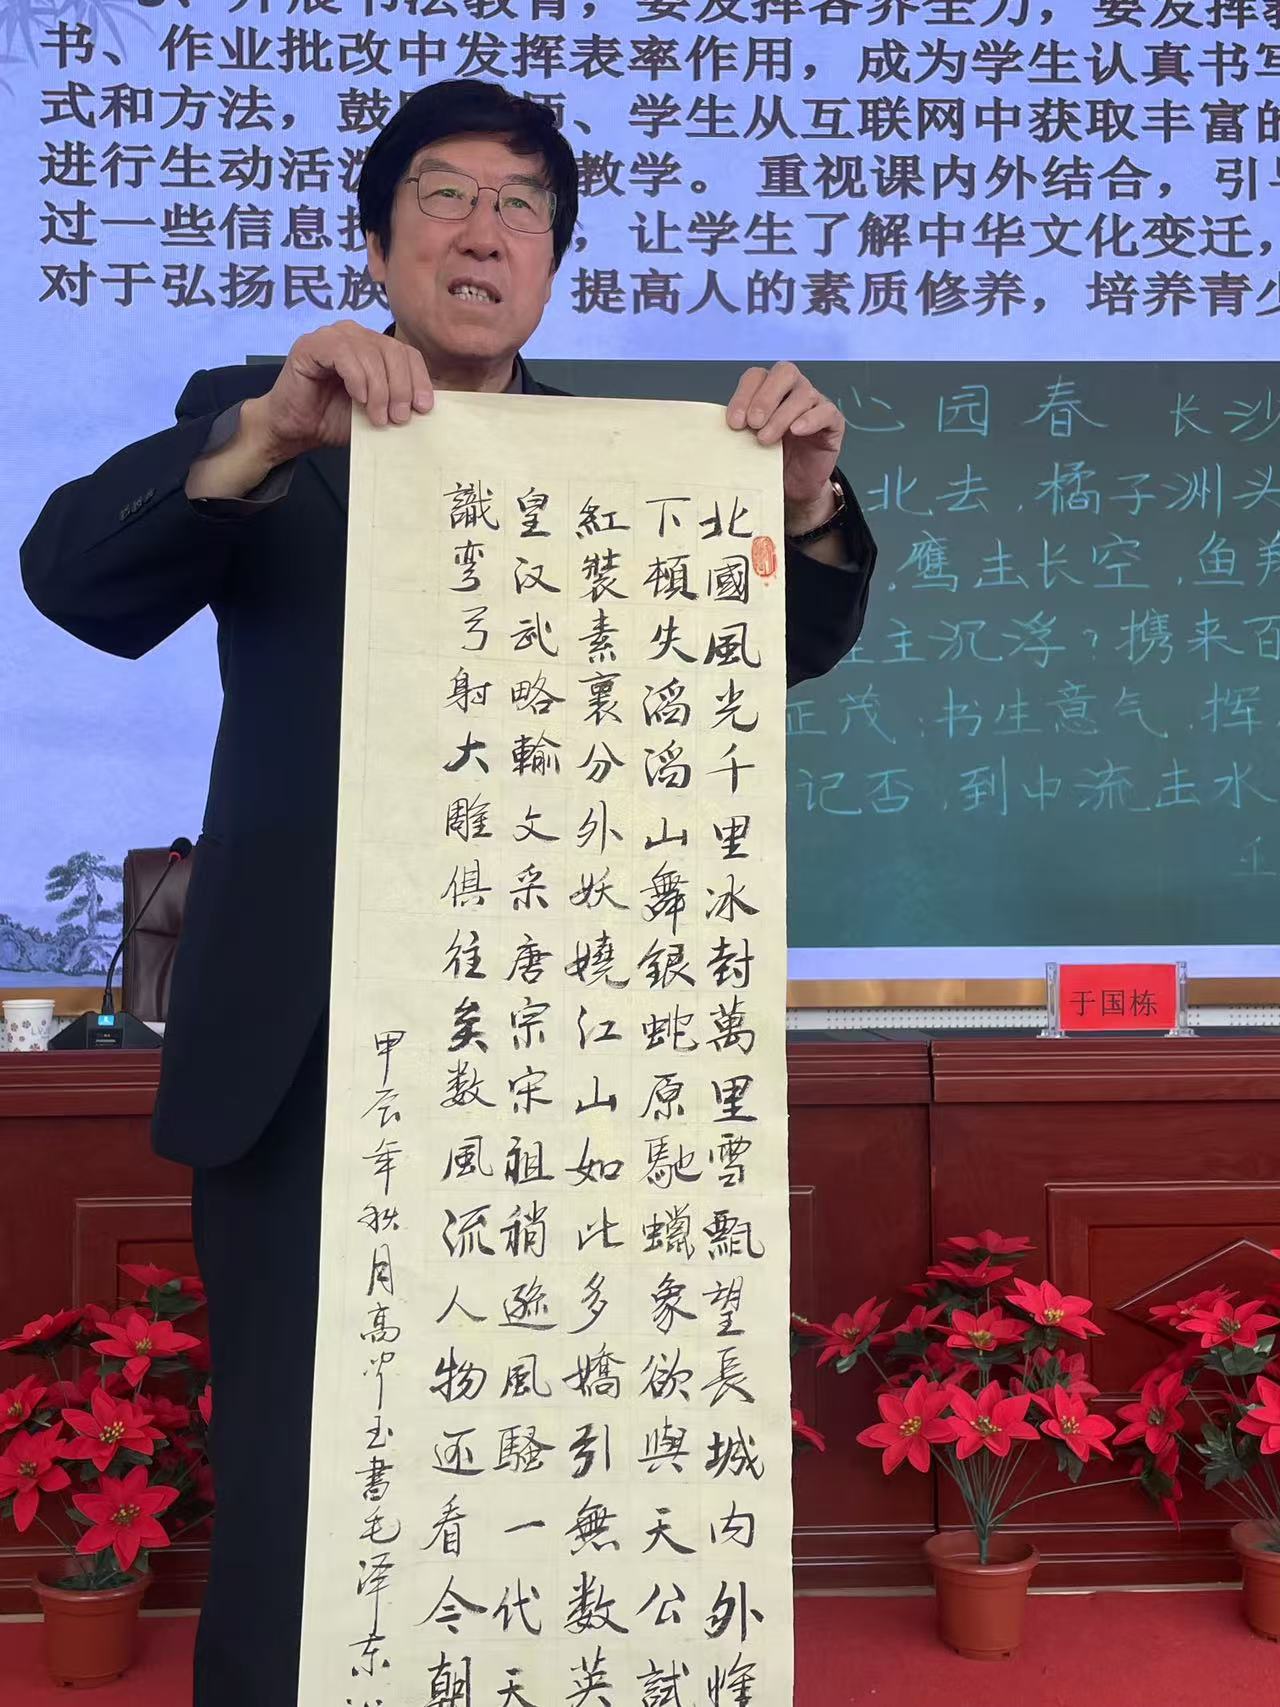 书、作业批改中发挥表率作用，成为学生认真书写
式和方法，鼓 师、学生从互联网中获取丰富的
进行生动活泼 教学。重视课内外结合，引导
过一些信息技 ，让学生了解中华文化变迁，
对于弘扬民族 提高人的素质修养，培养青少
心园春 长沙
北去，橘子洲头
鹰击长空，鱼翔
主沉浮？携来百
正茂；书生意气，挥
记否，到中流击水
北國風光千里冰封萬里雪飄望長城内外惟
下頓失滔滔山舞銀蛇原馳蠟象欲與天公試
紅裝素裹分外妖嬈江山如此多嬌引無数英
皇汉武略輸文采唐宗宋祖稍遜風騷一代天
識弯弓射大雕俱往矣数風流人物还看今朝
甲辰年秋月高 玉書毛泽东
于国栋